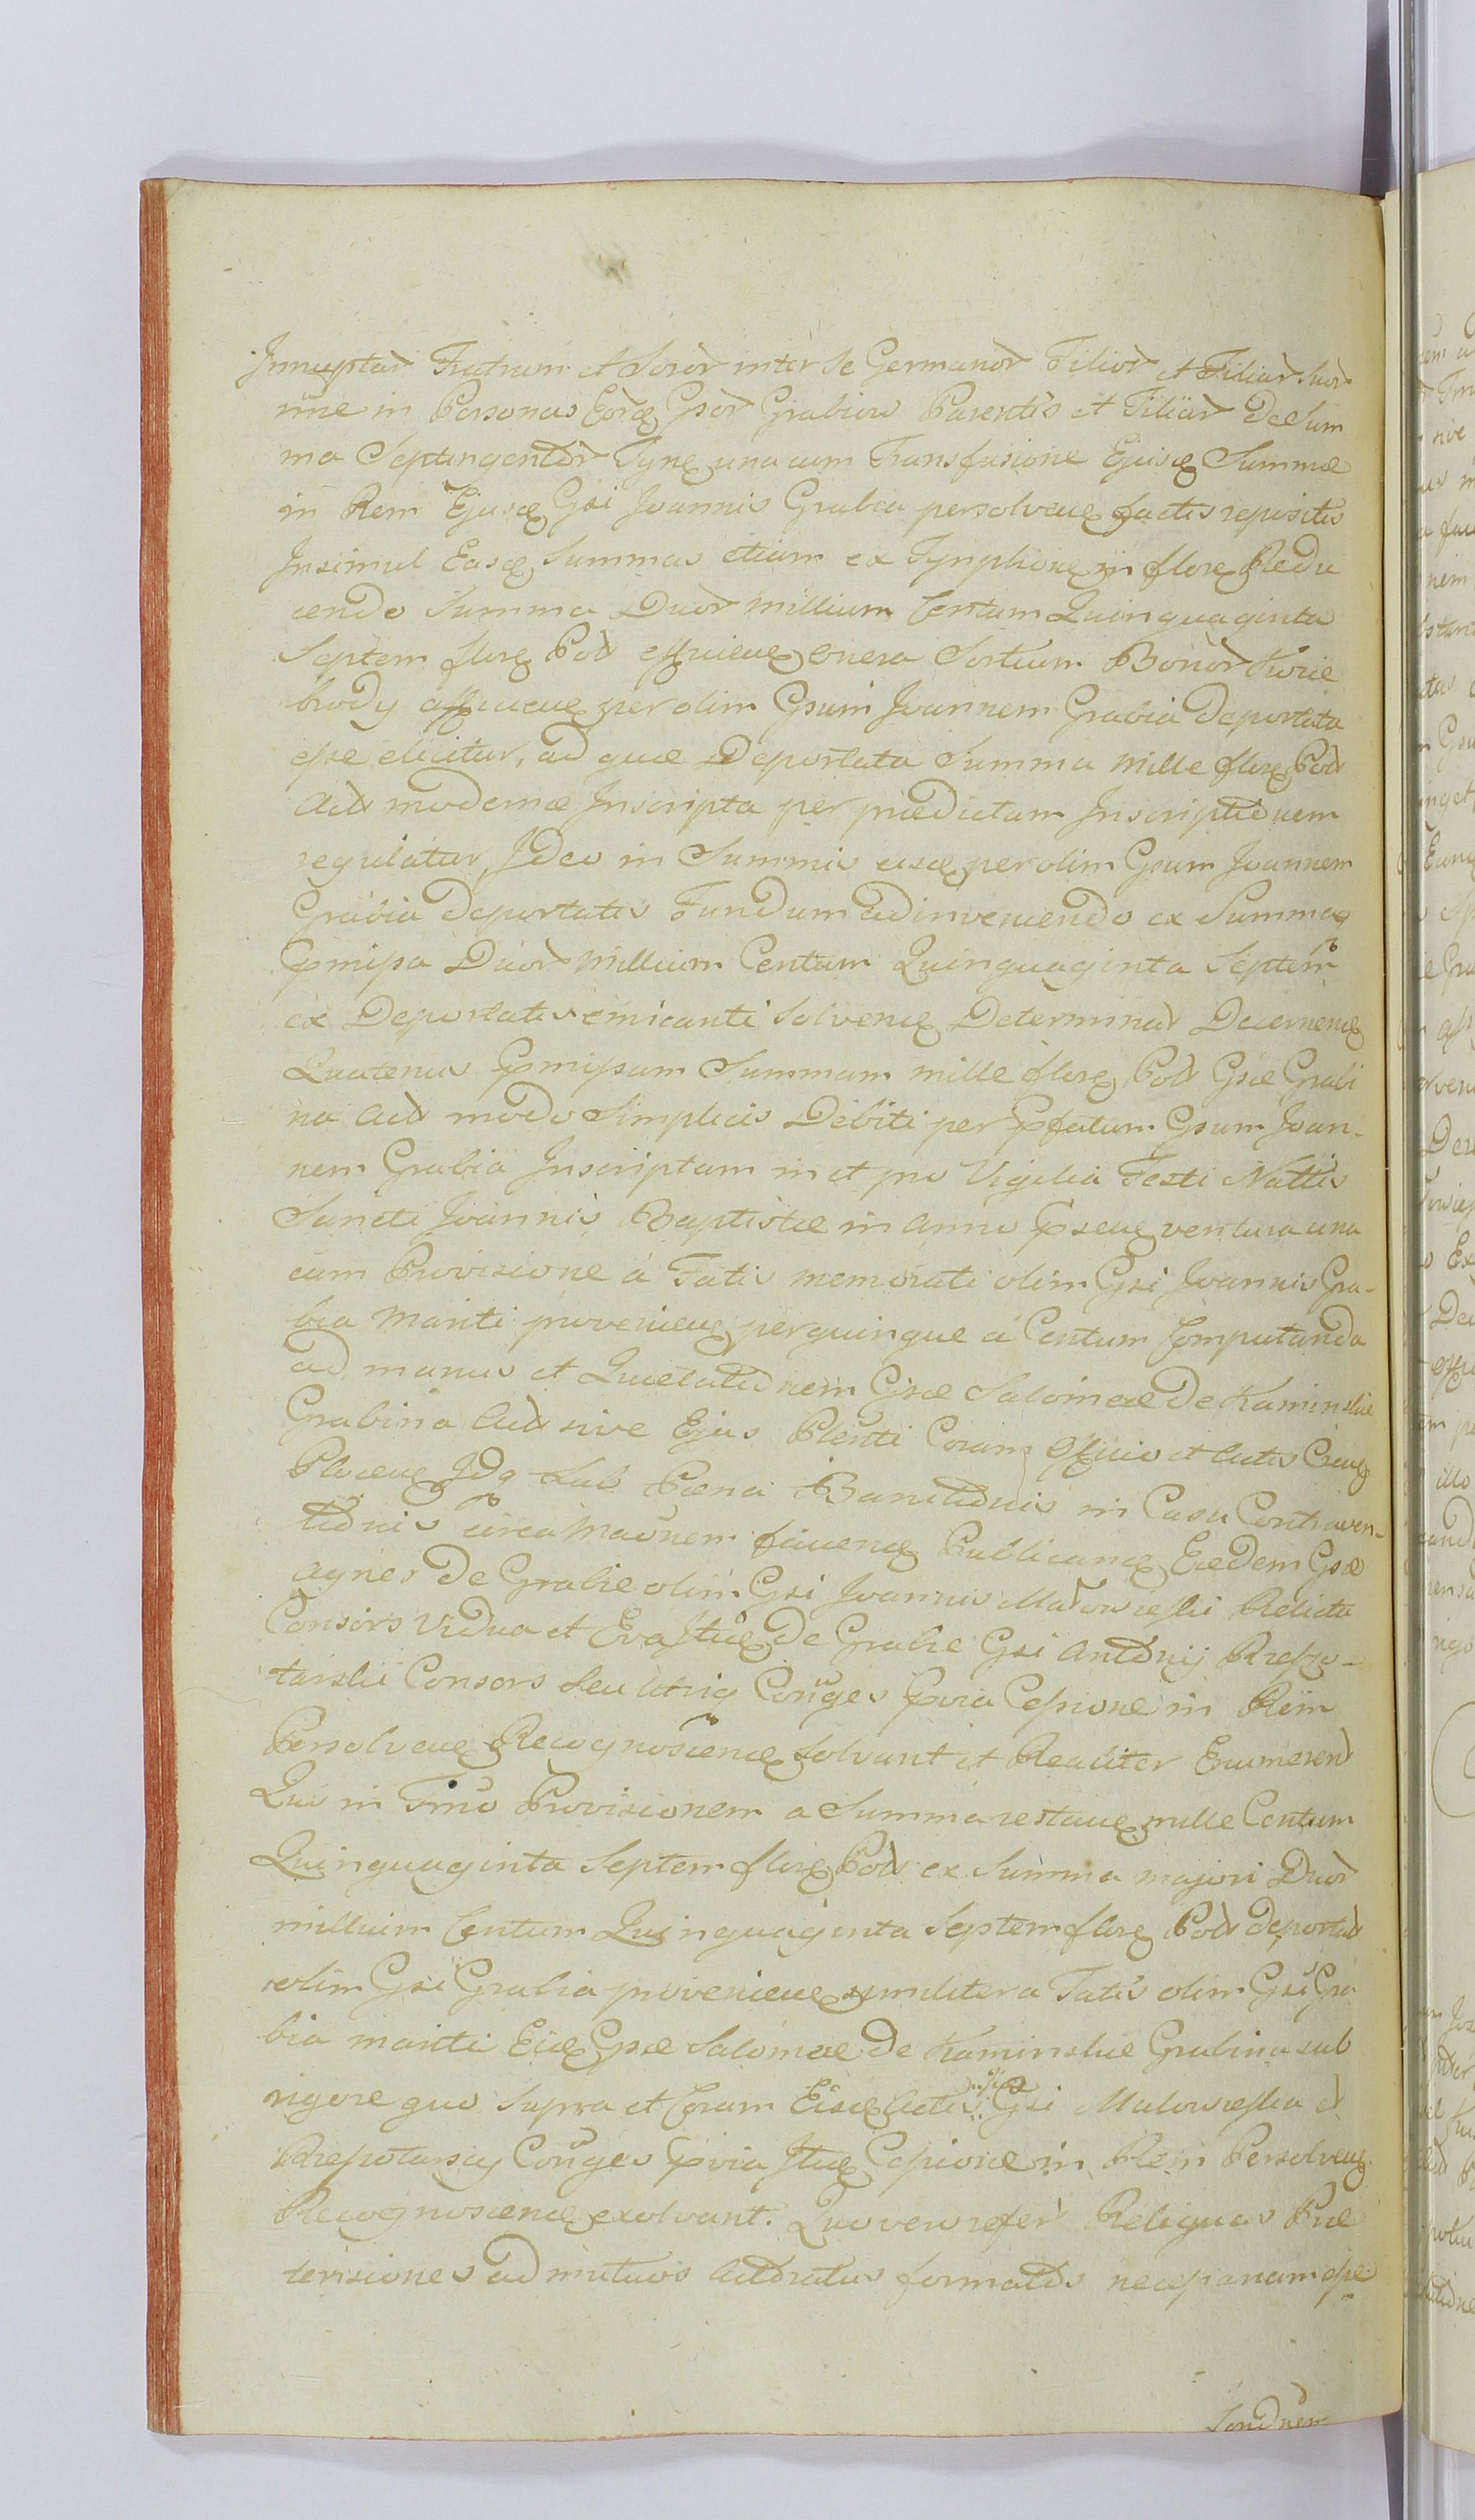 Innuptar Fratrum et Soror inter se Germanor Filior et Filiar Suor
nne in Personas Eorq Gsor Grabiow Parentis et Filiar De Sum
ma Septingentor Tynq una cum Transfusione Ejusq Summæ
in Rem Ejusq Gsi Joannis Grabia persolvenq factis repositis
Insimul Easq Summas etiam ex Tymphonq in florq Redu
cendo Summa Duor Millium Centum Quinquaginta
Septem florq Pol efficienq onera Sortium Bonor Kozie
brody afficienq per olim Gsum Joannem Grabia deportata
esse elicitur, ad quæ Deportata Summa Mille florq Pol
Act modernæ Inscripta per prædictam Inscriptionem
regulatur, Ideo in Summis eisq per olim Gsum Joannem
Grabia deportatis Fundum adinveniendo ex Summa
pmissa Duor Millium Centum Quinquaginta Septem
ex Deportatis emicanti solvenq Determinat Decernenq
Quatenus pmissam Summam mille florq Pol Gsæ Grabi
na Act modo Simplicis Debiti per pfatum Gsum Joan-
nem Grabia Inscriptam in et pro Vigilia Festi Nattis
Sancti Joannis Baptistæ in Anno psenq ventura una
cum Provisione a Fatis memorati olim Gsi Joannis Gra-
bia Mariti provenienq per quinque a Centum Computanda
ad manus et Quietationem Gsæ Salomeæ de Kaminskie
Grabina Act sive Ejus Plenti Coram Officio et Actis Crenq
Plocenq Idq Sub Pæna Bannitionis in Casu Contraven-
tionis circa Maonem fiuenq Publicanq Eædem Gsæ
Agnes de Grabie olim Gsi Joannis Malowieski Relicta
Consors Vidua et Eva Itidq de Grabie Gsi Antonij Rzeszo-
tarski Consors seu utriq Conges pvia Cessione in Rem
Persolvenq Recognoscenq solvant et Realiter Enumerent
Quo in Tmno Provisionem a Summa restanq mille Centum
Quinquaginta Septem florq Pol ex Summa majori Duor
millium Centum Quinquaginta Septem florq Pol deportat
olim Gsi Grabia provenienq similiter a Fatis olim Gsi Gra
bia mariti Eidq Gsæ Salomeæ de Kaminskie Grabina sub
rigore quo supra et Coram Eisq Actis Gsi Malowieska et
Rzeszotarscy Conges pvia Itidq Cessione in Rem Persolvenq
Recognoscenq exolvant. Quo vero refer Reliquas Præ
tensiones ad mutuos Actoratus formatos necesariam esse
Condnem